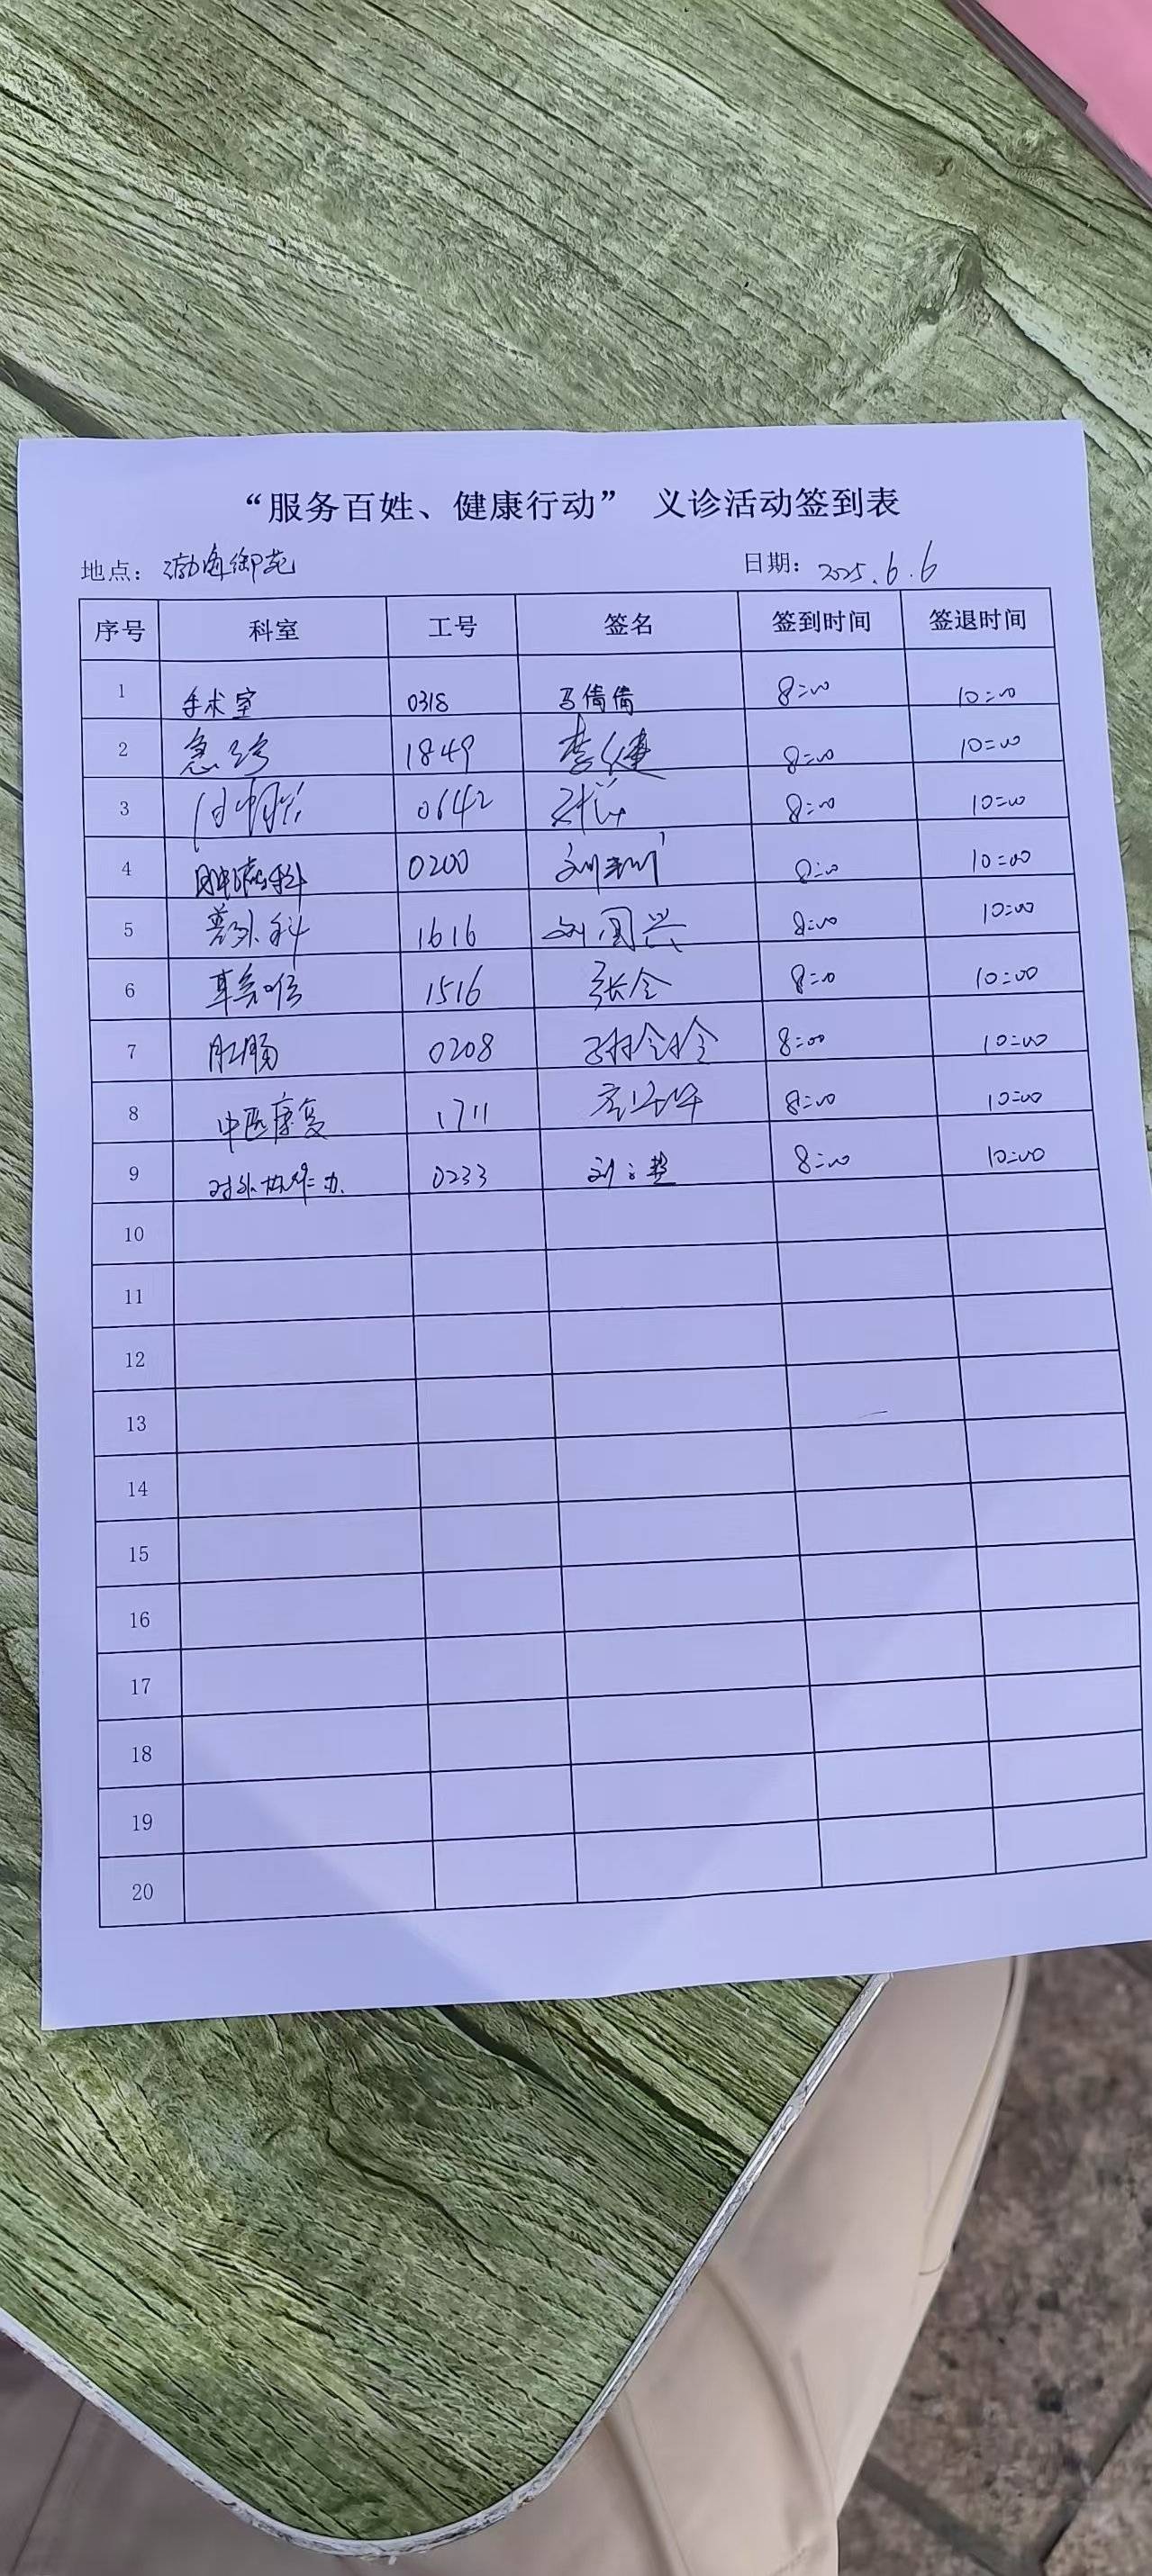 “服务百姓、健康行动” 义诊活动签到表
地点：渤海御苑 日期：2025.6.6
序号 科室 工号 签名 签到时间 签退时间
1 手术室 0318 马倩倩 8:00 10:00
2 急诊 1849 李健 8:00 10:00
3 0642 8:00 10:00
4 科 0200 刘 8:00 10:00
5 普外科 1616 刘国兴 8:00 10:00
6 1516 张全 8:00 10:00
7 肛肠 0208 8:00 10:00
8 中医康复 1711 8:00 10:00
9 对外协作办 0233 刘 8:00 10:00
10
11
12
13
14
15
16
17
18
19
20